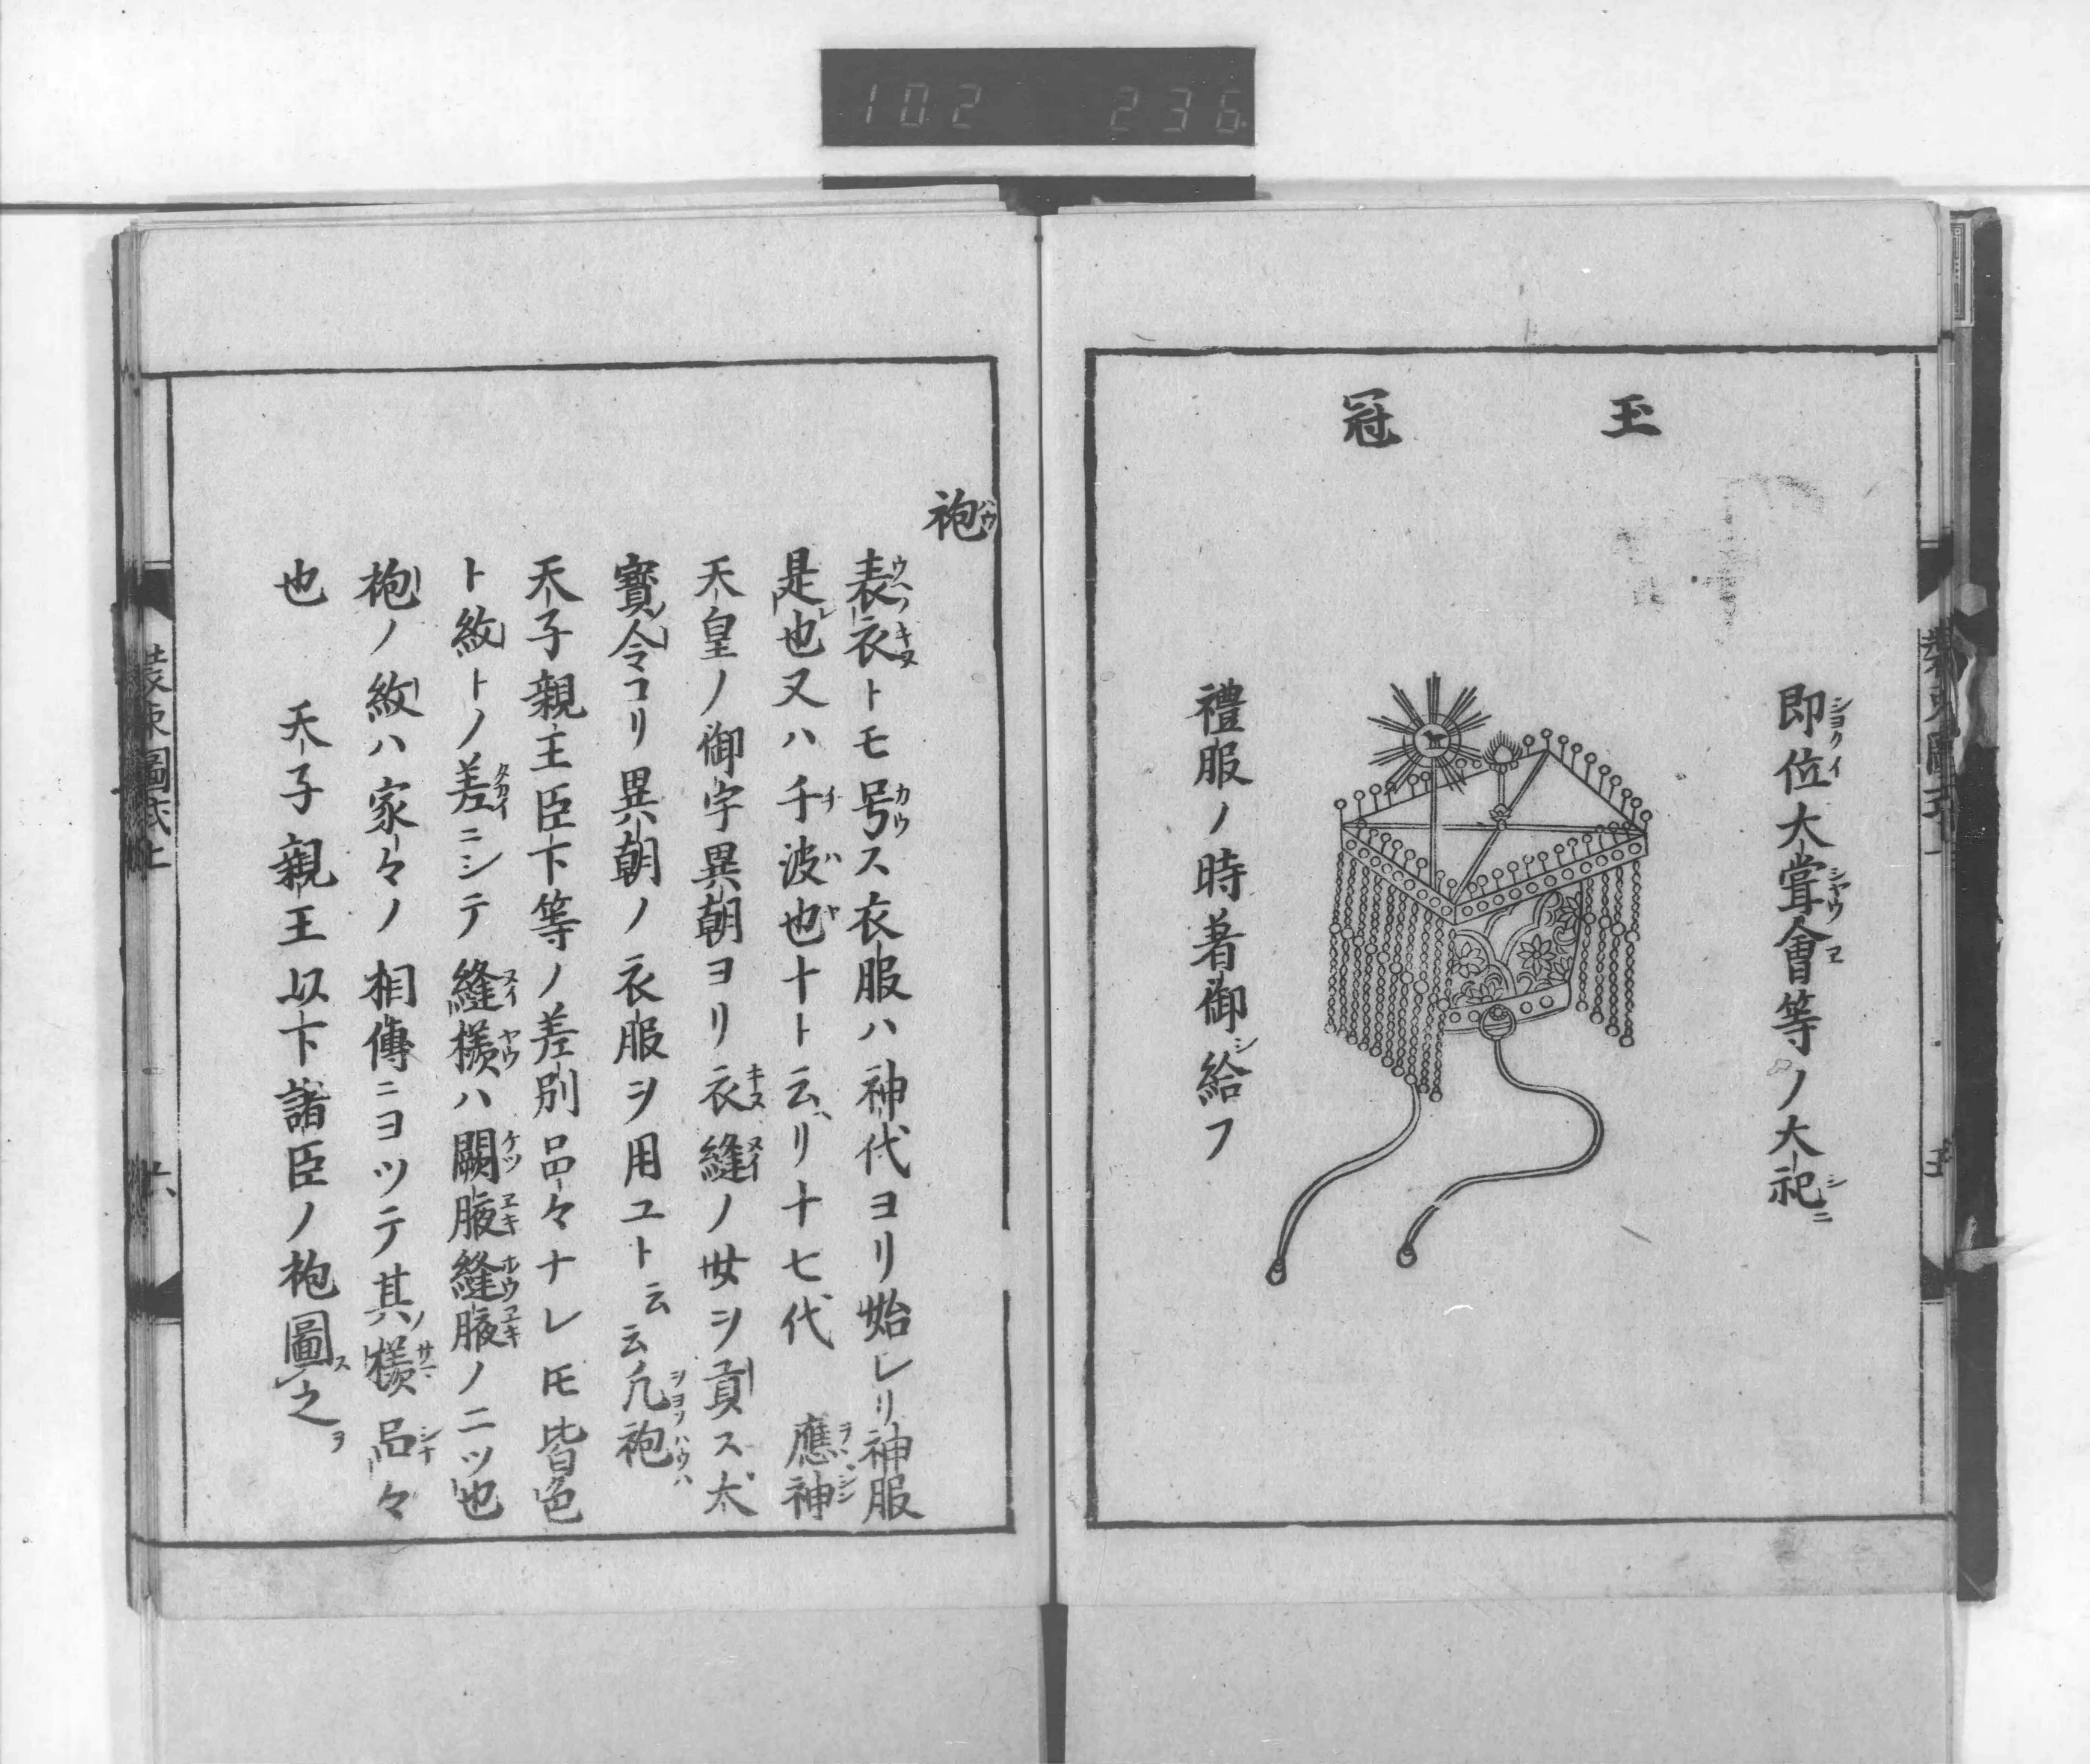 102 236
玉冠
即位大甞會等ノ大祀ニ
禮服ノ時着御シ給フ
袍
表衣トモ号ス衣服ハ神代ヨリ始レリ神服
是也又ハ千波也ナト云リ十七代 應神
天皇ノ御宇異朝ヨリ衣縫ノ女ヲ貢ス大
寳令ヨリ異朝ノ衣服ヲ用ユト云云凡袍
天子親王臣下等ノ差別品々ナレ𪜈皆色
ト紋トノ差ニシテ縫樣ハ闕腋縫腋ノ二ツ也
袍ノ紋ハ家々ノ相傳ニヨツテ其樣品々
也 天子親王以下諸臣ノ袍圖之
裝束圖式上
六